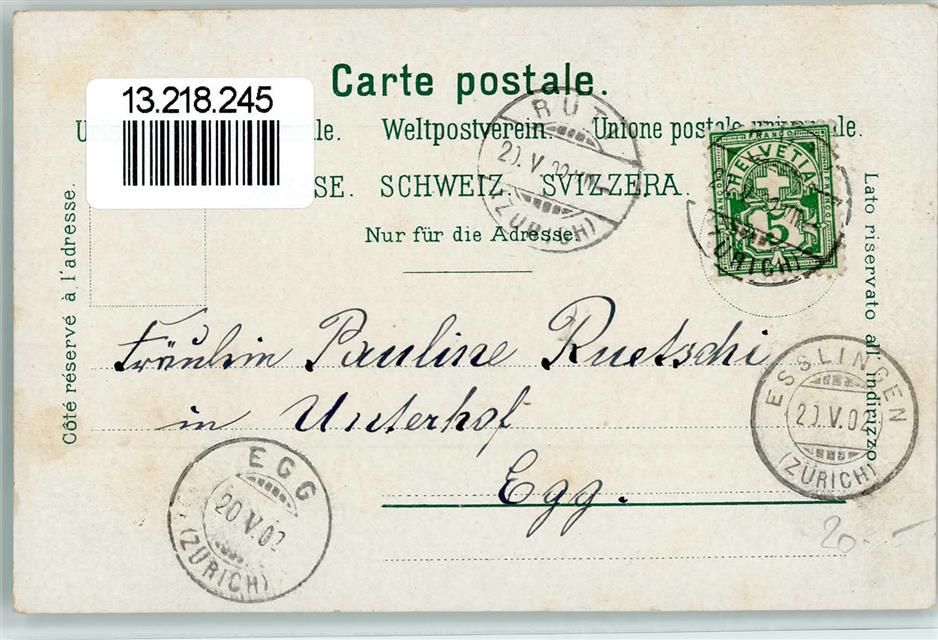 Carte postale.
13.218.245
Weltpostverein. Unione postale universale.
SCHWEIZ. SVIZZERA.
Nur für die Adresse.
Côté réservé à l'adresse.
Lato riservato all' indirizzo.
RUTI
20.V.02
(ZÜRICH)
FRANCO
HELVETIA
5
(ZÜRICH)
Fräulein Pauline Ruetschi
in Unterhof
Egg.
ESSLINGEN
20.V.02
(ZÜRICH)
EGG
20.V.02
(ZÜRICH)
20.-